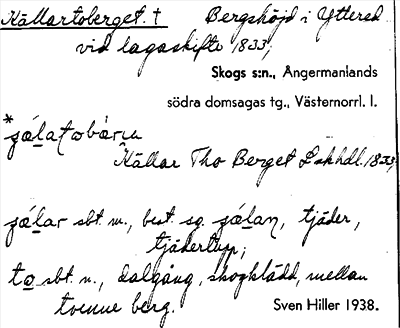 Källartoberget. † Bergshöjd i Yttered
vid lagaskifte 1833;
Skogs s:n., Ångermanlands
södra domsagas tg., Västernorrl. l.
*ɟä̀latobärɟɩ
Källar Tho Berget Lskhdl. 1833;
ɟä̀lar sbt. m., best. sg. ɟä̀lan, tjäder,
tjädertupp;
to sbt. n., dalgång, skogklädd, mellan
tvenne berg. Sven Hiller 1938.